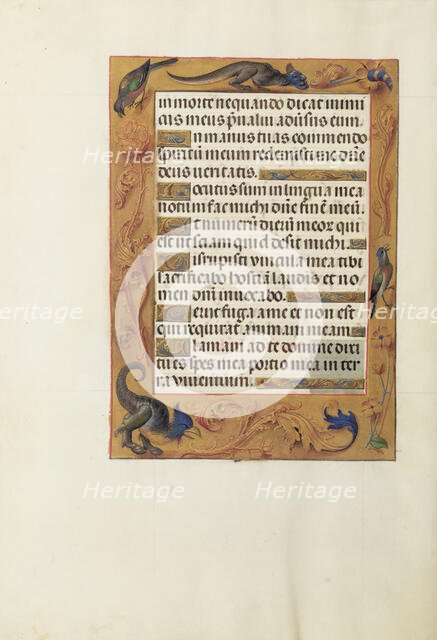 in morte ne quando dicat inimi
cus meus prevalui adversus eum.
In manus tuas commendo
spiritu meum redemisti me dne
deus veritatis.
Locutus sum in lingua mea
notum fac michi dne fine meu.
Et numeru dieru meor qui
est ut sciam quid desit michi.
Disrupisti vincula mea tibi
sacrificabo hostia laudis et no
men dni invocabo.
Periit fuga a me et non est
qui requirat animam meam.
Clamavi ad te domine dixi
tu es spes mea portio mea in ter
ra viventium.
Heritage
Heritage
Heritage
Heritage
Heritage
Heritage
Heritage
Heritage
Heritage